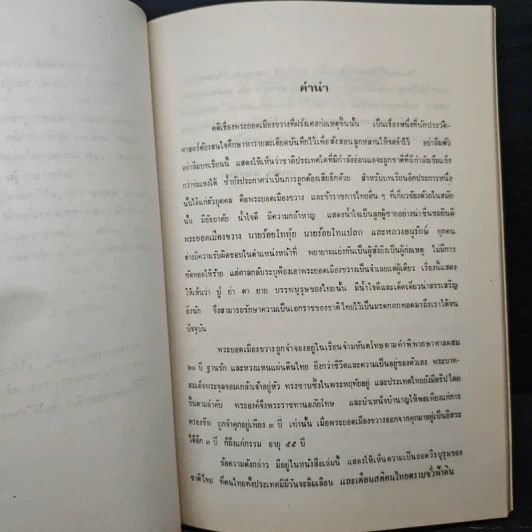 คำนำ
คดีเรื่องพระยอดเมืองขวางที่ฝรั่งเศสก่อเหตุขึ้นนั้น เป็นเรื่องหนึ่งที่นักประวัติ-
ศาสตร์ต้องสนใจศึกษาหารายละเอียดบันทึกไว้เพื่อสั่งสอนลูกหลานให้จดจำไว้ อย่าลืมตัว
อย่าลืมบทเรียนนี้ แสดงให้เห็นว่าชาติประเทศใดที่มีกำลังอ่อนแอจะถูกชาติที่มีกำลังเข้มแข็ง
กว่าข่มเหงได้ ซ้ำยังประกาศว่าเป็นการถูกต้องเสียอีกด้วย สำหรับบทเรียนอีกประการหนึ่ง
นั้นได้แก่ตัวบุคคล คือพระยอดเมืองขวาง และข้าราชการไทยอื่น ๆ ที่เกี่ยวข้องด้วยในสมัย
นั้น มีอัธยาศัย น้ำใจดี มีความกล้าหาญ แสดงน้ำใจเป็นลูกผู้ชายอย่างน่าชื่นชมยินดี
พระยอดเมืองขวาง นายร้อยโททุ้ย นายร้อยโทแปลก และหลวงอนุรักษ์ ทุกคน
ต่างมีความรับผิดชอบในตำแหน่งหน้าที่ พยายามแย่งกันเป็นผู้สั่งยิงเป็นผู้ก่อเหตุ ไม่มีการ
ซัดทอดให้ร้าย แต่ศาลกลับระบุฟ้องเอาพระยอดเมืองขวางเป็นจำเลยแต่ผู้เดียว เรื่องนี้แสดง
ให้เห็นว่า ปู่ ย่า ตา ยาย บรรพบุรุษของไทยนั้น มีน้ำใจดีและเด็ดเดี่ยวน่าสรรเสริญ
ยิ่งนัก จึงสามารถรักษาความเป็นเอกราชของชาติไทยไว้เป็นมรดกตกทอดมาถึงเราได้จน
ปัจจุบัน
พระยอดเมืองขวางถูกจำจองอยู่ในเรือนจำมหันตโทษตามคำพิพากษาศาลผสม
๒๐ ปี ฐานรัก และหวงแหนแผ่นดินไทย ยิ่งกว่าชีวิตและความเป็นอยู่ของตัวเอง พระบาท-
สมเด็จพระจุลจอมเกล้าเจ้าอยู่หัว ทรงซาบซึ้งในพระหฤทัยอยู่ และประเทศไทยยังมีอธิปไตย
ขึ้นตามลำดับ พระองค์จึงพระราชทานอภัยโทษ และบำเหน็จบำนาญให้พอเพียงแก่การ
ครองชีพ ถูกจำคุกอยู่เพียง ๓ ปี เท่านั้น เมื่อพระยอดเมืองขวางออกจากคุกมาอยู่เป็นอิสระ
ได้อีก ๓ ปี ก็ถึงแก่กรรม อายุ ๕๕ ปี
ข้อความดังกล่าว มีอยู่ในหนังสือเล่มนี้ แสดงให้เห็นความเป็นยอดวีรบุรุษของ
ชาติไทย ที่คนไทยทั้งประเทศมิมีวันจะลืมเลือน และเตือนสติคนไทยตราบชั่วฟ้าดิน